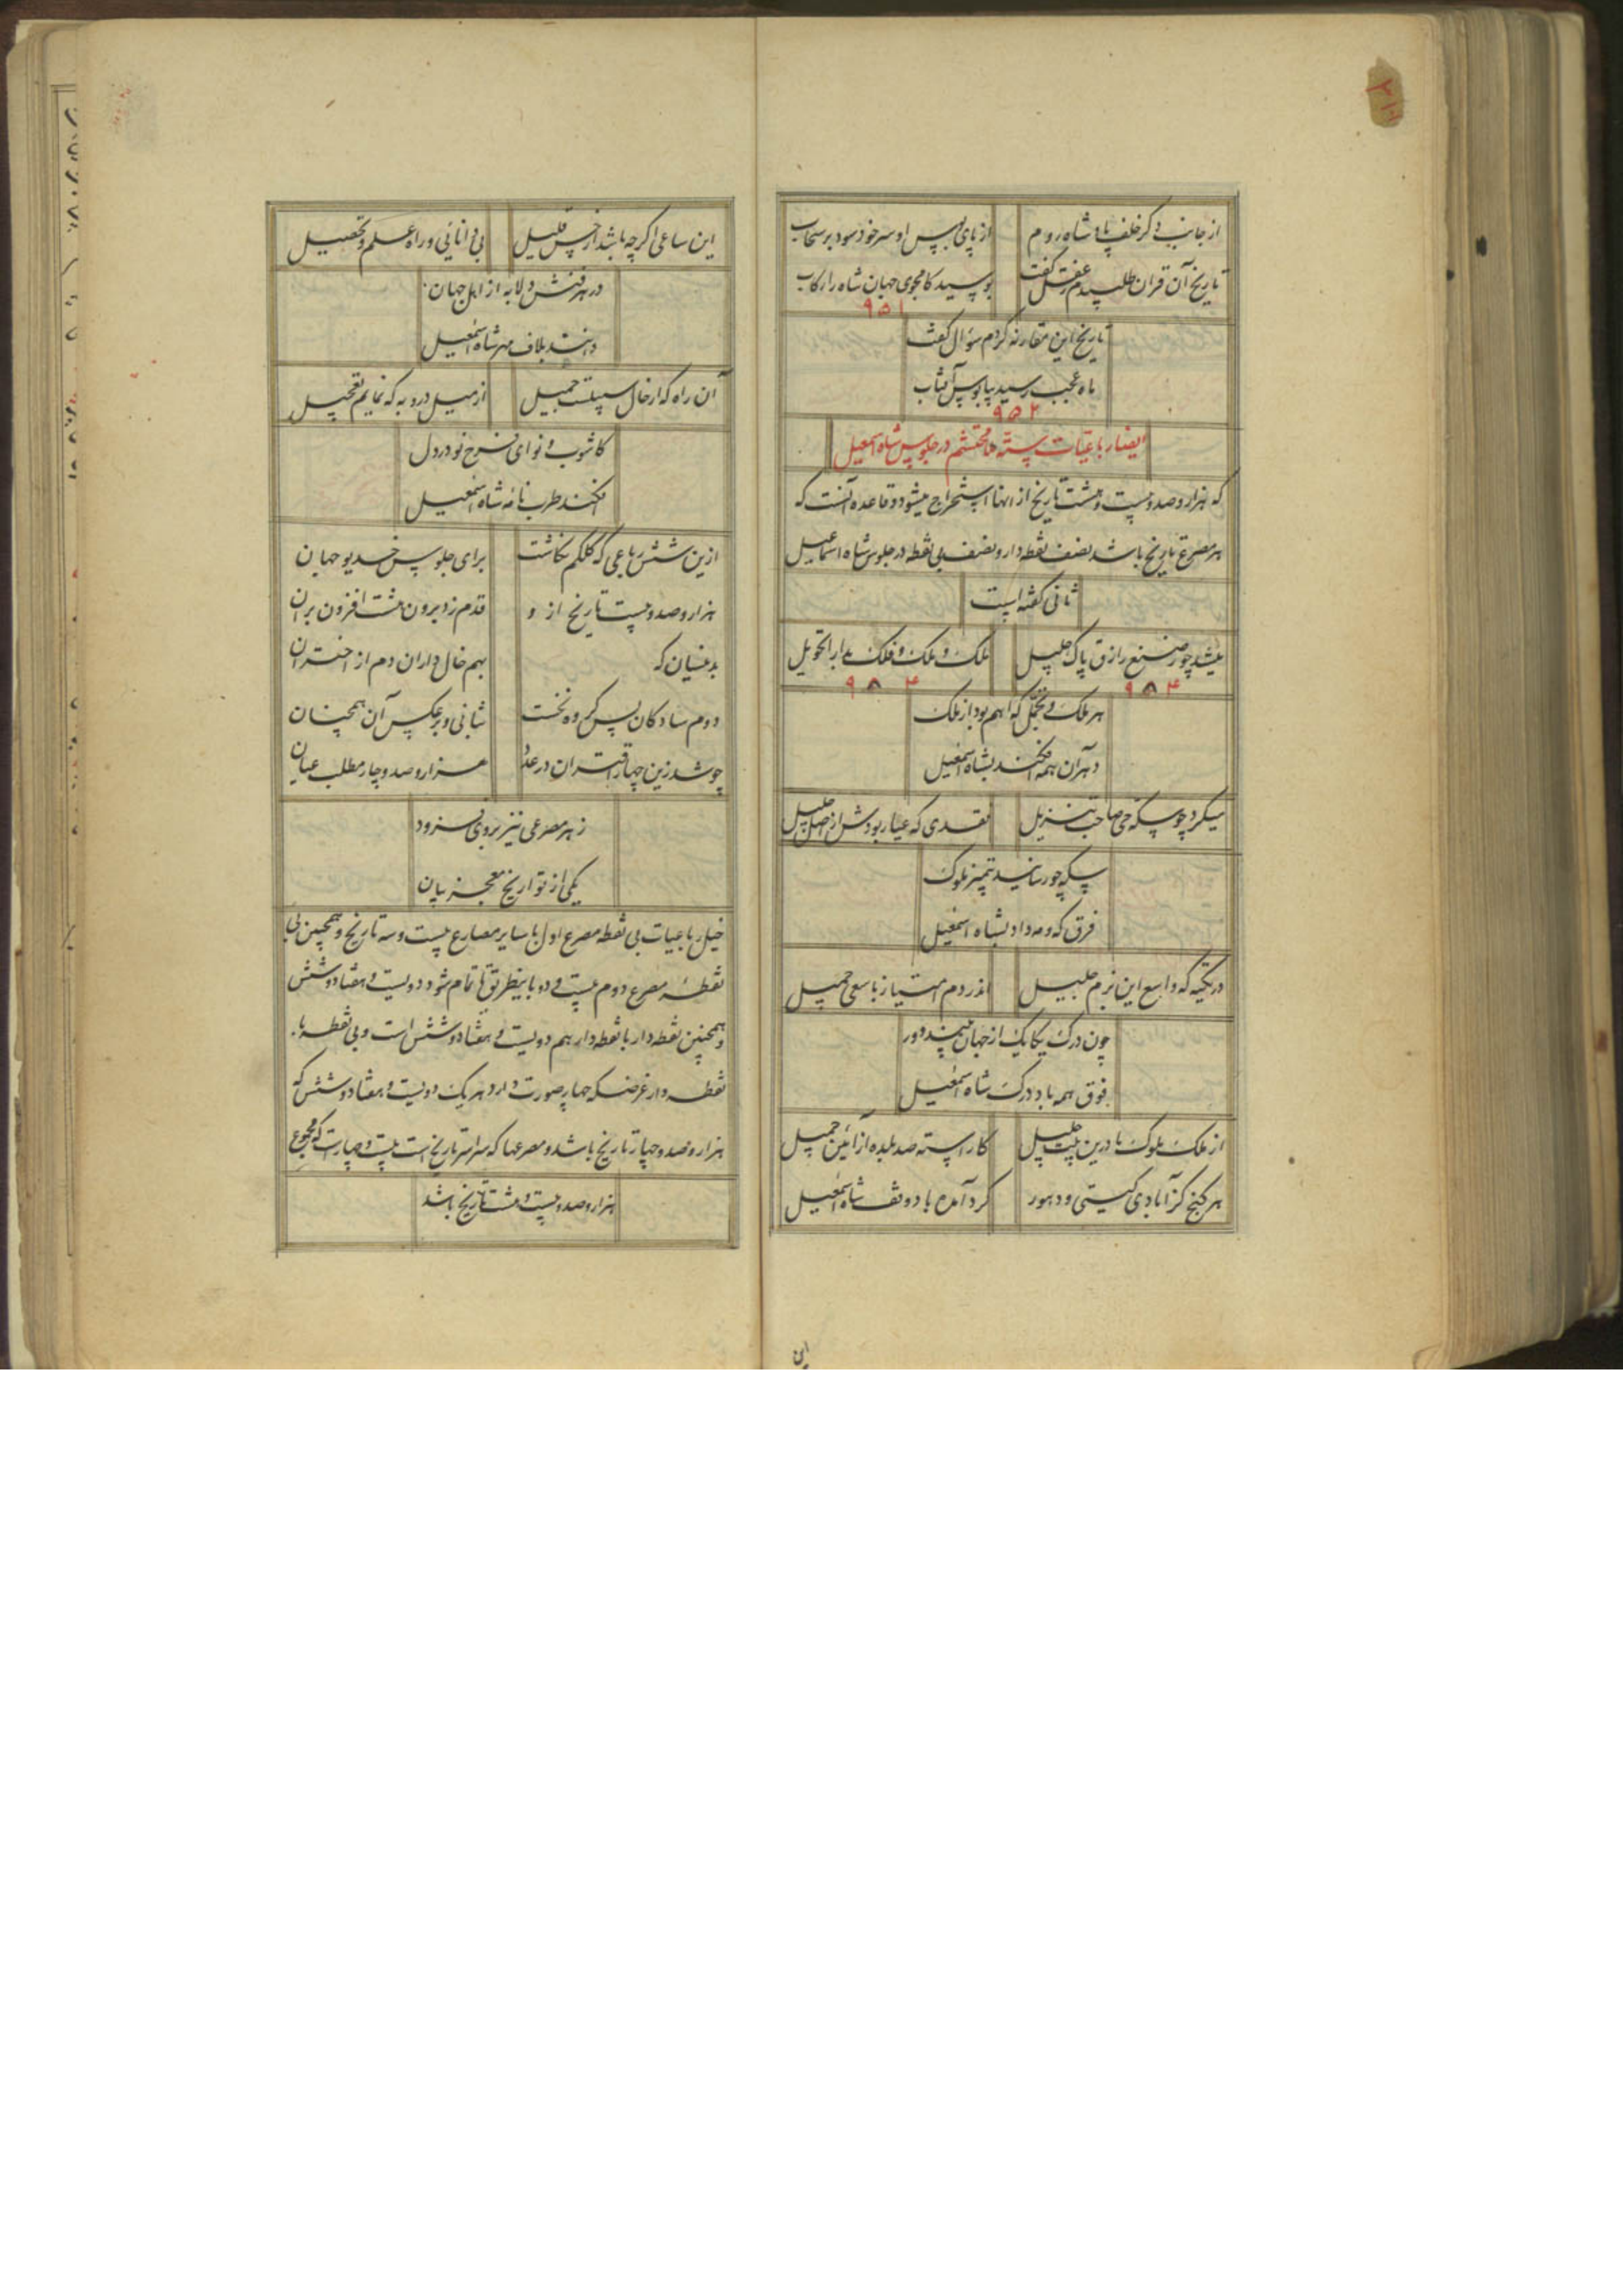 از جانب دگر خلف پادشاه روم از پای بوس او سر خود سود بر سحاب
تاریخ آن قران طلبیدم ز عقل گفت بوسید کامجوی جهان شاه را رکاب
۹۵۱
تاریخ این مقارنه کردم سؤال گفت
ماه عجب رسید بپابوس آفتاب
۹۵۲
ایضا رباعیات سته محتشم در جلوس شاه اسمعیل
که هزار و صد و بیست و هشت تاریخ از انها استخراج میشود و قاعده آنست که
هر مصرع تاریخ باشد نصف نقطه دار و نصف بی نقطه در جلوس شاه اسماعیل
ثانی گفته است
میشد چو ز صنع رازق پاک جلیل ملک و ملک و فلک مدار التحویل
۹۸۴ ۹۸۴
هر ملک و تجمل که اهم بود از ملک
دهر آن همه افکند بشاه اسمعیل
میکرد چو سکه حی صاحب تنزیل نقدی که عیار بودش از اصل
سکه چو رسانید تمیز ملوک
فرق که و مه داد بشاه اسمعیل
در تکیه که واسع این بزم جلیل اندر دم امتیاز با سعی جمیل
چون درک یکایک از جهان بیند دور
فوق همه باد درک شاه اسمعیل
از ملک ملوک ما درین کاراسته صد بلده از آئین جمیل
هر گنج کز آبادی گیتی و دهور گرد آمده باد وقف شاه اسمعیل
این
این ساعی اگر چه باشد از خس قلیل بی دانائی و راه علم و تحصیل
در هر فنش دلا به از اهل جهان
دانند بلاف مهر شاه اسمعیل
آن راه که از خال سپلت جمیل از میل درو به که نمایم تعجیل
کاشوب و نوای نو در دل
افکند طرب نامه شاه اسمعیل
ازین شش رباعی که کلکم نگاشت برای جلوس خدیو جهان
هزار و صد و بیست تاریخ از و قدم زد برون هشت افزون بران
بدینسان که بهم خال داران دم از اختران
دوم سادگان پس گروه نخست بثانی و بر عکس آن همچنان
چو شد زین چهار اقتران در عدد هزار و صد و چار مطلب عیان
ز هر مصرعی نیز بروی فزود
یکی از تواریخ معجز بیان
خیل رباعیات بی نقطه مصرع اول با سایر مصارع بیست و سه تاریخ و همچنین بی
نقطه مصرع دوم بیست و دو باینطریق تا تمام شود دویست و هفتاد و شش
و همچنین نقطه دار با نقطه دار هم دویست و هفتاد و شش است و بی نقطه با
نقطه دار غرضکه چهار صورت دارد هر یک دویست و هفتاد و شش که
هزار و صد و چهار تاریخ باشد و مصرعها که سراسر تاریخ است بیست و چهار است که مجموع
هزار و صد و بیست و هشت تاریخ باشد